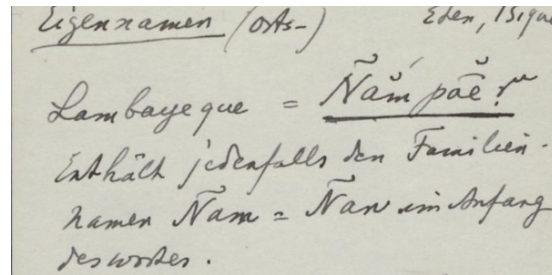 Eigennamen (Orts-) Eten,
Lambayeque = Ñăm păĕ?
Enthält jedenfalls den Familien-
namen Ñam = Ñan im Anfang
des Wortes.